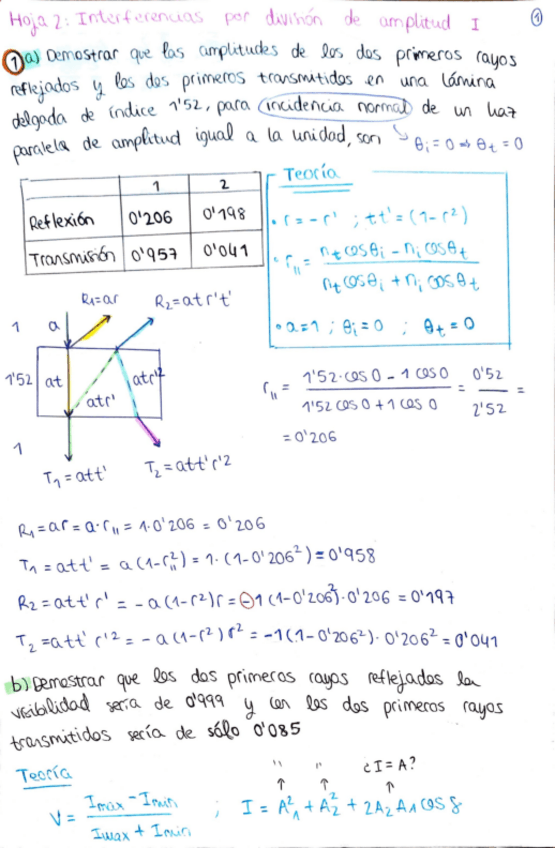 Hoja 2: Interferencias por división de amplitud I
1
1 a) Demostrar que las amplitudes de los dos primeros rayos
reflejados y los dos primeros transmitidos en una lámina
delgada de índice 1'52, para incidencia normal de un haz
paralelo de amplitud igual a la unidad, son θi = 0 ⇒ θt = 0
1 2
Reflexión 0'206 0'198
Transmisión 0'957 0'041
Teoría
• r = -r' ; tt' = (1-r²)
• r11 = (nt cosθi - ni cosθt) / (nt cosθi + ni cosθt)
• a = 1 ; θi = 0 ; θt = 0
R1 = ar R2 = atr't'
1 a
1'52 at atr' atr'²
1
T1 = att' T2 = att'r'2
r11 = (1'52·cos0 - 1 cos0) / (1'52 cos0 + 1 cos0) = 0'52 / 2'52 =
= 0'206
R1 = ar = a·r11 = 1·0'206 = 0'206
T1 = att' = a(1-r11²) = 1·(1-0'206²) = 0'958
R2 = att'r' = -a(1-r²)r = -1(1-0'206²)·0'206 = 0'197
T2 = att' r'2 = -a(1-r²)r² = -1(1-0'206²)·0'206² = 0'041
b) Demostrar que los dos primeros rayos reflejados la
visibilidad sería de 0'999 y con los dos primeros rayos
transmitidos sería de sólo 0'085
Teoría
" " ¿I = A?
↑ ↑ ↑
V = (Imax - Imin) / (Imax + Imin) ; I = A1² + A2² + 2A2A1 cos δ